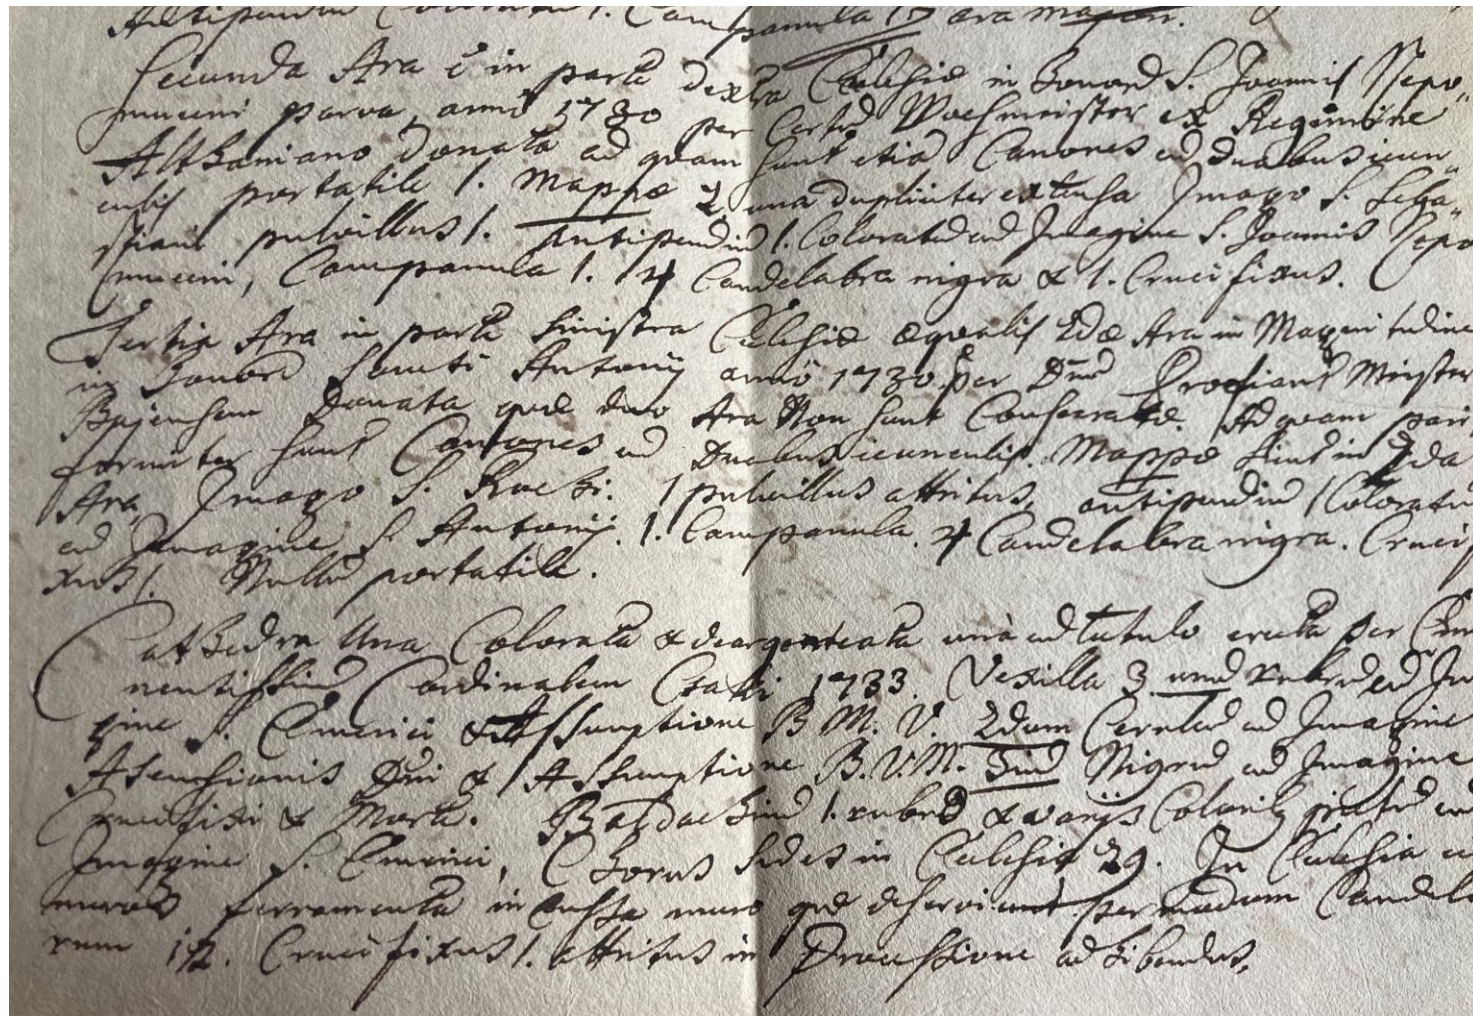 Antipendium Coloratum 1. Campanula 1
Secunda Ara è in parte dextra Ecclesiæ in honorē S. Joannis Nepo„
muceni parva, annō 1730 per Certū Wachmeister ex Regimine
Althaniano donata ad quam sunt etiā Canones cū duabus icun„
culis portatile 1. Mappæ 2 una dupliciter extensa Imago S. Seba„
stiani pulvillus 1. Antipendiū 1. Coloratū cū Imagine S. Joannis Nepo
muceni, Campanula 1. 4 Candelabra nigra & 1. Crucifixus.
Tertia Ara in parte sinistra Ecclesiæ æqualis 2dæ Ara in Magnitudine
in honorē Sancti Antonij annō 1730 per Dnū Profiant Meister
Bajensem Donata quæ duo Ara Non sunt Consecratæ. Ad quam pari
formiter sunt Canones cū Duabus icunculis. Mappæ sicut in 2da
Ara, Imago S. Rochi. 1 pulvillus attritus, antipendiū 1 Coloratū
cū Imagine S. Antonij. 1. Campanula. 4 Candelabra nigra. Crucifi
xus 1. Nullū portatile.
Cathedra Una Colorata & deargenteata unà cū tutulo erecta per Emi
nentissimū Cardinalem Csaki 1733. Vexilla 3 unū rubrū cū Ima
gine S. Emerici & Assumptione B M. V. 2dum Ceruleū cū Imagine
Asensionis Dni & Assumptione B. V. M. 3iū Nigrū cū Imagine
Crucifixi & Morte. Baldachinū 1. rubrū & varijs Colorib9 pictū cū
Imagine S. Emerici, Chorus sedes in Ecclesia 29. In Ecclesia
muros ferramenta in muro quæ deserviunt per modum Candela
rum 12. Crucifixus 1. attritus in Processione adhibendus.